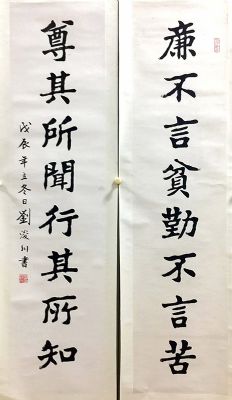 廉不言貧勤不言苦
尊其所聞行其所知
戊辰年立冬日劉浚川書